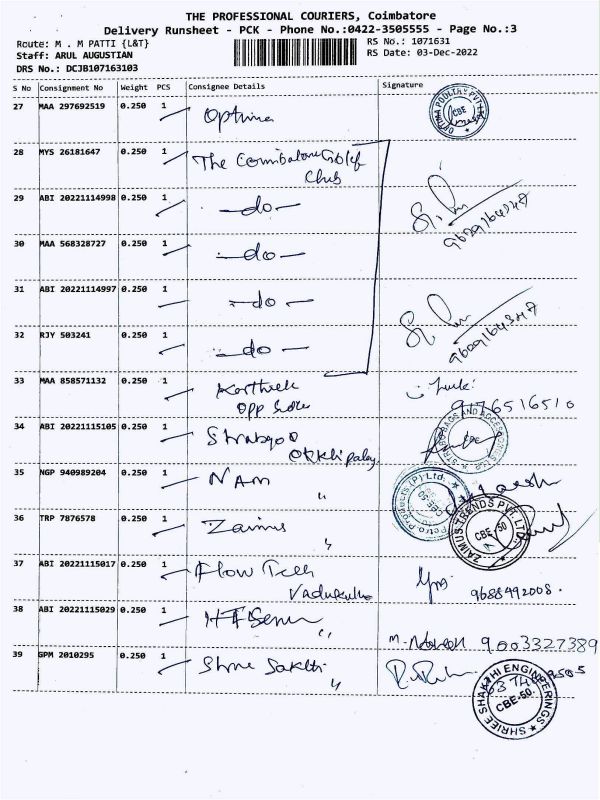 THE PROFESSIONAL COURIERS, Coimbatore
Delivery Runsheet - PCK - Phone No.:0422-3505555 - Page No.:3
Route: M . M PATTI {L&T} RS No.: 1071631
Staff: ARUL AUGUSTIAN RS Date: 03-Dec-2022
DRS No.: DCJB107163103
S No Consignment No Weight PCS Consignee Details Signature
27 MAA 297692519 0.250 1 Optima OPTIMA POULTRY PVT LTD CBE
28 MYS 26181647 0.250 1 The Coimbatore Golf
Club
29 ABI 20221114998 0.250 1 -do-
30 MAA 568328727 0.250 1 -do-
31 ABI 20221114997 0.250 1 -do-
32 RJY 503241 0.250 1 -do-
33 MAA 858571132 0.250 1 Karthick
opp 9176516510
34 ABI 20221115105 0.250 1 BAGS AND ACCESSORIES
35 NGP 940989204 0.250 1 NAM " Petro Products (P) Ltd. CBE-50
36 TRP 7876578 0.250 1 Zaimus " ZAIMUS TRENDS PVT. LTD. CBE-50
37 ABI 20221115017 0.250 1 Flow Tech
9688492008.
38 ABI 20221115029 0.250 1 "
9003327389
39 GPM 2010295 0.250 1 Shree Sakthi "
SHRIEE SHAKTHI ENGINEERINGS CBE-50.